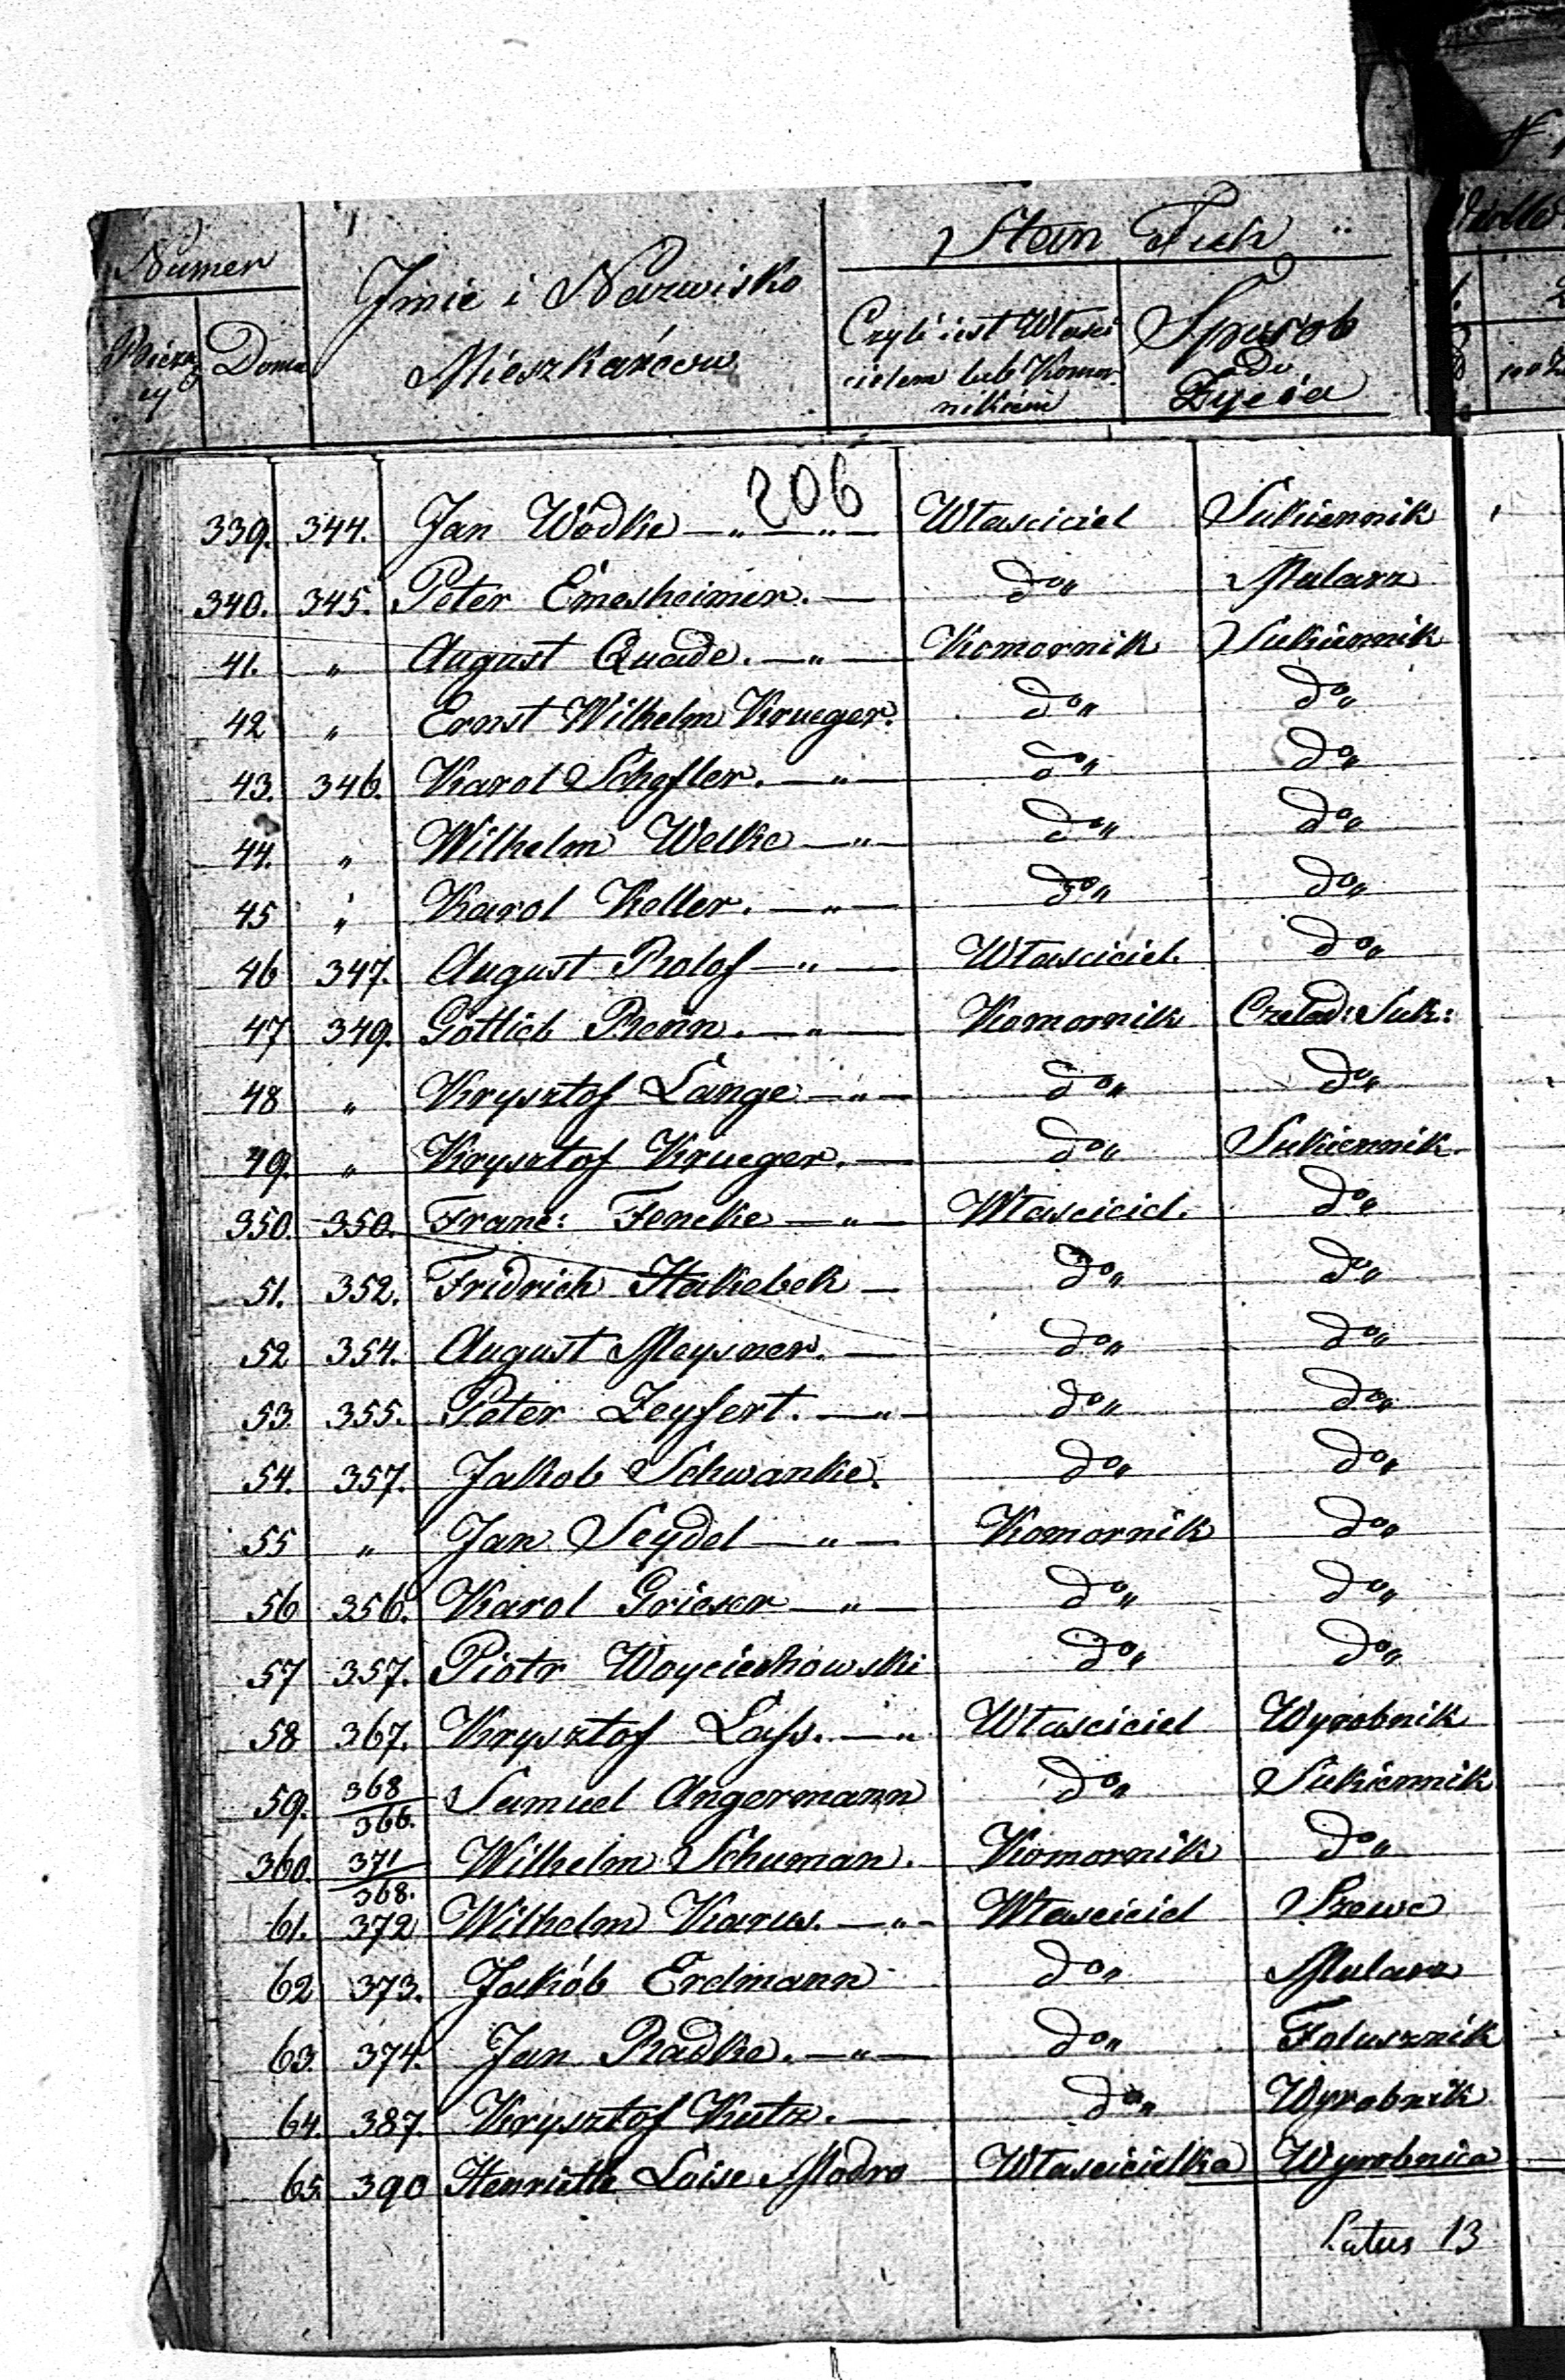 Numer
Imie i Nazwisko
Mieszkańców
Stan Tych
Bieżą
cy
Domu
Czyli iest Własci
cielem lub Komor
nikiem
Sposób
do
Życia
206
339. 344. Jan Wódke —„—„— Wlasciciel Sukiennik
340. 345. Peter Emesheimer. — do„ Mularz
41. „ August Quade. —„— Komornik Sukiennik
42 „ Ernst Wilhelm Krueger. do„ do„
43. 346. Karol Schefler. —„— do„ do„
44. „ Wilhelm Welke —„— do„ do„
45 „ Karol Keller. —„— do„ do„
46 347. August Rolof —„— Wlasciciel. do„
47 349. Gottlieb Renn. —„— Komornik Czelad: Suk:
48 „ Krysztof Lange —„— do„ do„
49. „ Krysztof Krueger. — do„ Sukiennik
350. 350. Franc: Fencke —„— Wlasciciel. do„
51. 352. Fridrich Hakebek — do„ do„
52 354. August Meysner. — do„ do„
53. 355. Peter Zeyfert. —„— do„ do„
54. 357. Jakob Schwanke. do„ do„
55 „ Jan Seydel —„— Komornik do„
56 356. Karol Grieser —„— do„ do„
57 357. Piotr Woyciechowski do„ do„
58 367. Krysztof Lass. —„ Wlasciciel Wyrobnik
59. 368/366. Samuel Angermann do„ Sukiennik
360. 371/368. Wilhelm Schuman. Komornik do„
61. 372 Wilhelm Karus. —„— Wlasciciel Szewc
62 373. Jakób Erdmann do„ Mularz
63. 374. Jan Radke. —„— do„ Folusznik
64. 387. Krysztof Kutz. — do„ Wyrobnik
65. 390 Henriette Loise Modro Wlascicielka Wyrobnica
Latus 13